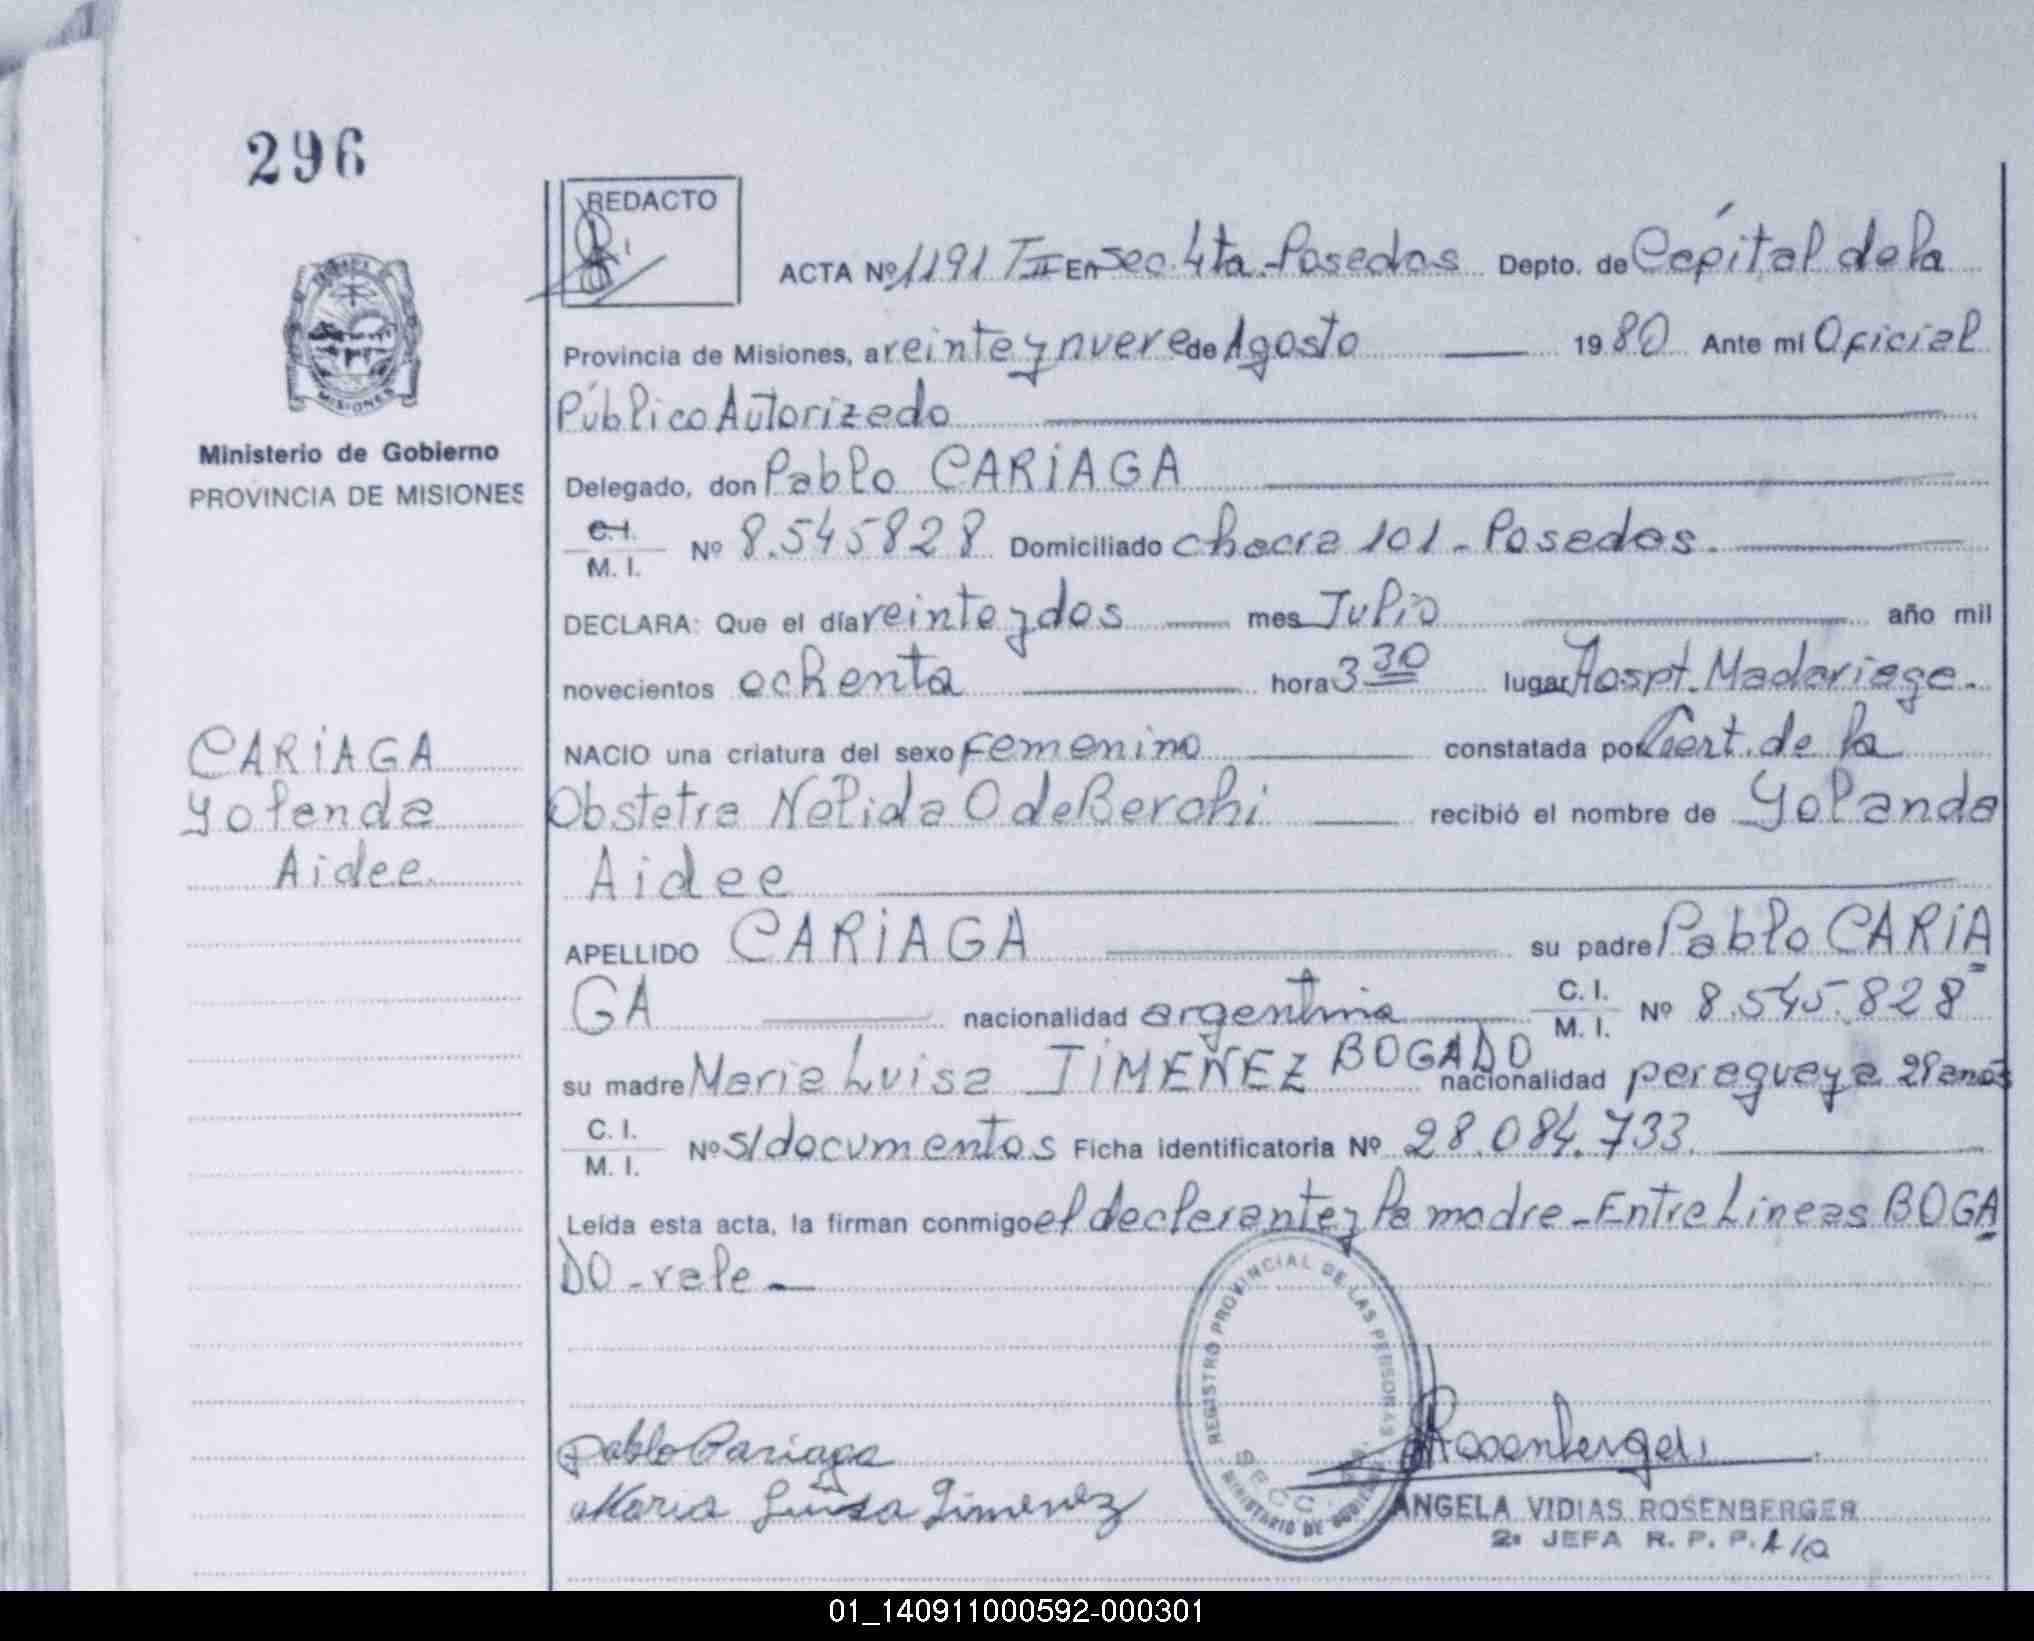 296
REDACTO
ACTA Nº 1191 TII En Sec. 4ta - Posadas Depto. de Capital de la
Provincia de Misiones, a veinte y nueve de Agosto 1980 Ante mi Oficial
Público Autorizado
MISIONES
Ministerio de Gobierno
PROVINCIA DE MISIONES
Delegado, don Pablo CARIAGA
C.I.
M. I. Nº 8.545828 Domiciliado chacra 101 - Posadas.
DECLARA: Que el día veinte y dos mes Julio año mil
novecientos ochenta hora 3 30 lugar Hospt. Madariaga.
NACIO una criatura del sexo femenino constatada por Cert. de la
Obstetra Nelida O de Berchi recibió el nombre de Yolanda
Aidee
CARIAGA
Yolanda
Aidee.
APELLIDO CARIAGA su padre Pablo CARIA
GA nacionalidad argentina C. I. M. I. Nº 8.545.828=
su madre Maria Luisa JIMENEZ BOGADO nacionalidad paraguaya 21 años
C. I.
M. I. Nº s/documentos Ficha identificatoria Nº 28.084.733.
Leída esta acta, la firman conmigo el declarante y la madre - Entre Lineas BOGA
DO - vale -
REGISTRO PROVINCIAL DE LAS PERSONAS
MINISTERIO DE GOBIERNO
SECC.
Pablo Cariaga
Maria Luisa Jimenez
Rosenberger
ANGELA VIDIAS ROSENBERGER
2ª JEFA R. P. P.
01_140911000592-000301